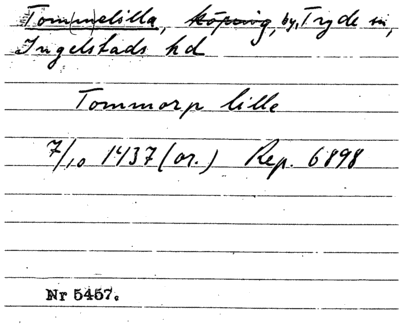 Tom(m)elilla, köping, by, Tryde sn,
Ingelstads hd
Tommorp lille
7/10 1437 (or.) Rep. 6898
Nr 5457.